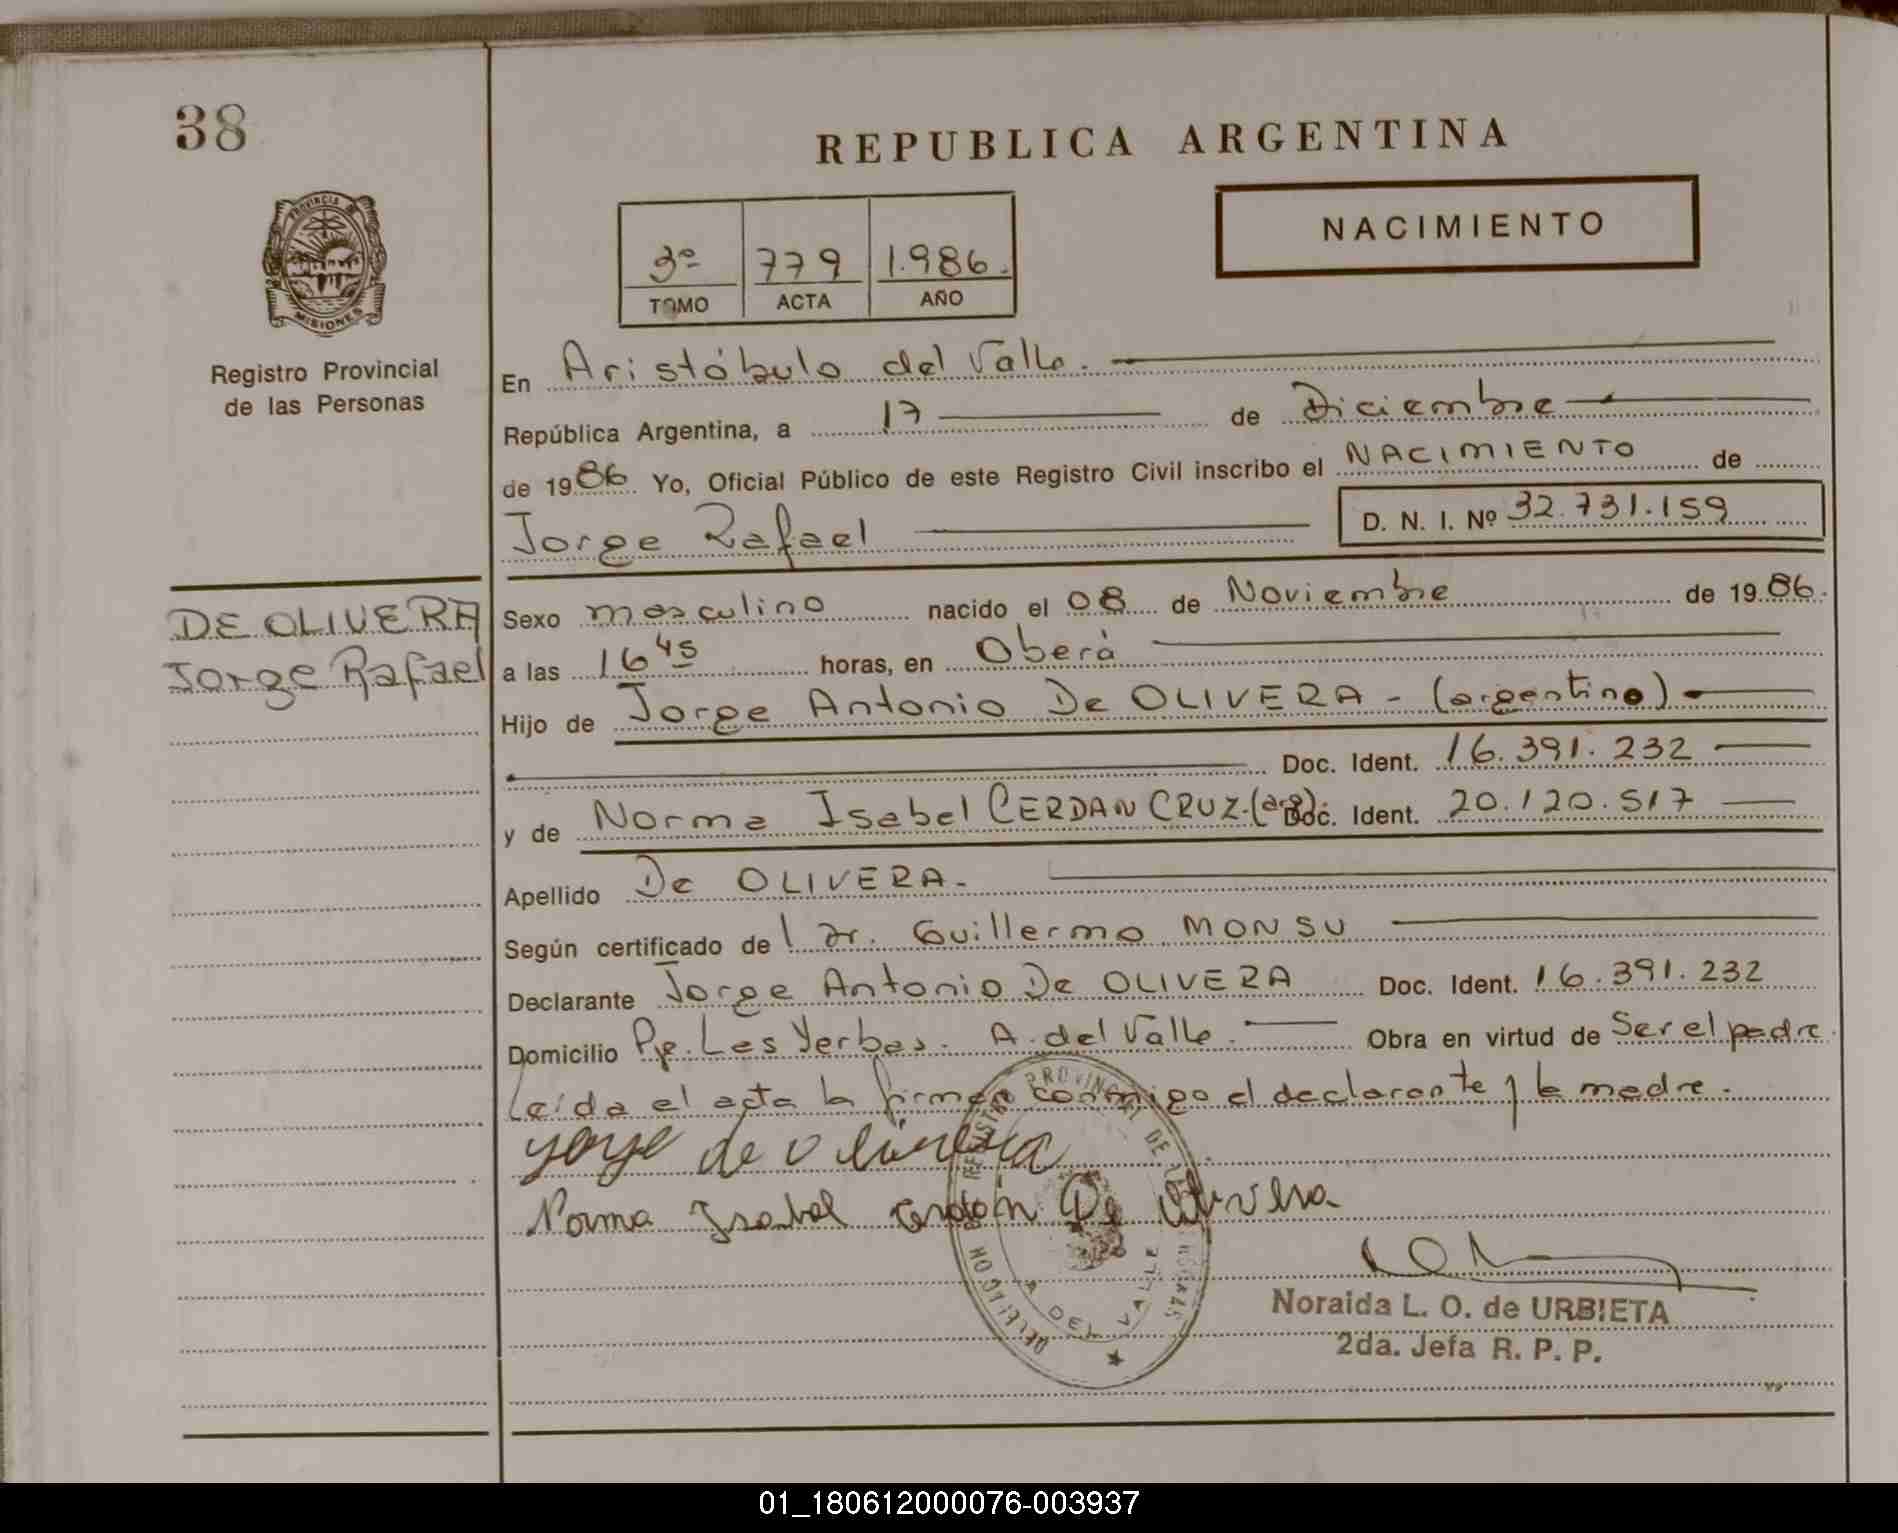 38
REPUBLICA ARGENTINA
PROVINCIA DE
MISIONES
Registro Provincial
de las Personas
3º 779 1.986.
TOMO ACTA AÑO
NACIMIENTO
En Aristóbulo del Valle.
República Argentina, a 17 de Diciembre
de 1986 Yo, Oficial Público de este Registro Civil inscribo el NACIMIENTO de
Jorge Rafael D. N. I. Nº 32.731.159
DE OLIVERA
Jorge Rafael
Sexo masculino nacido el 08 de Noviembre de 1986.
a las 16 45 horas, en Oberá
Hijo de Jorge Antonio De OLIVERA - (argentino)
Doc. Ident. 16.391.232
y de Norma Isabel CERDAN CRUZ.(arg). Doc. Ident. 20.120.517
Apellido De OLIVERA-
Según certificado del Dr. Guillermo MONSU
Declarante Jorge Antonio De OLIVERA Doc. Ident. 16.391.232
Domicilio Pje. Las Yerbas. A. del Valle. Obra en virtud de Ser el padre.
Leída el acta la firman conmigo el declarante y la madre.
Jorge de Olivera
Norma Isabel Cerdán De Olivera
PROVINCIAL DE
DELEGACION
A. DEL VALLE
Noraida L. O. de URBIETA
2da. Jefa R. P. P.
01_180612000076-003937